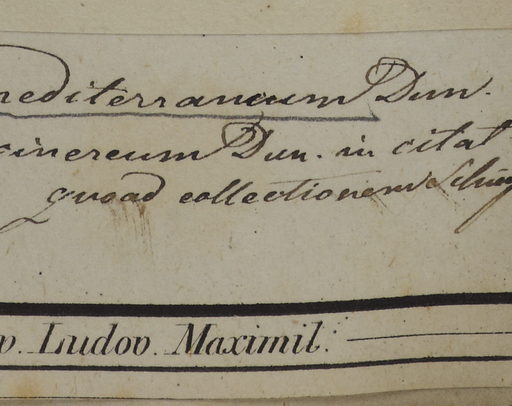 mediterraneum Dun.
cinereum Dun. in citat
quoad collectionem Schu
v. Ludov. Maximil.